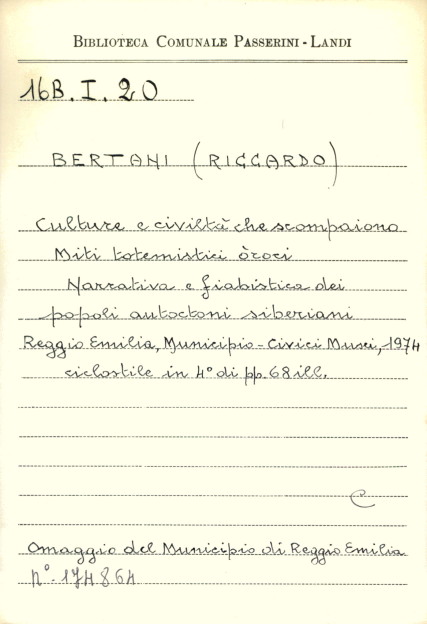 BIBLIOTECA COMUNALE PASSERINI - LANDI
16B. I. 20
BERTANI (RICCARDO)
Culture e civiltà che scompaiono
Miti totemistici òroci
Narrativa e fiabistica dei
popoli autoctoni siberiani
Reggio Emilia, Municipio - Civici Musei, 1974
ciclostile in 4° di pp. 68 ill.
C
Omaggio del Municipio di Reggio Emilia
n°. 174864